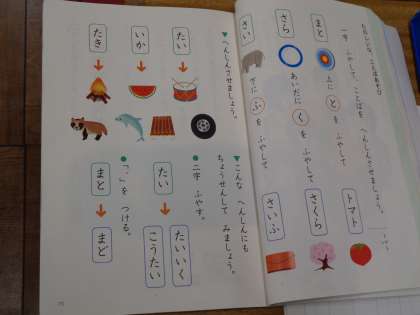 一字 ふやして、ことばを へんしんさせましょう。
まと
上に と を ふやして
トマト
さら
あいだに く を ふやして
さくら
さい
下に ふ を ふやして
さいふ
▼へんしんさせましょう。
たい
いか
たき
▼こんな へんしんにも
ちょうせんして みましょう。
●二字 ふやす。
たい
たいいく
こうたい
●「゛」を つける。
まと
まど